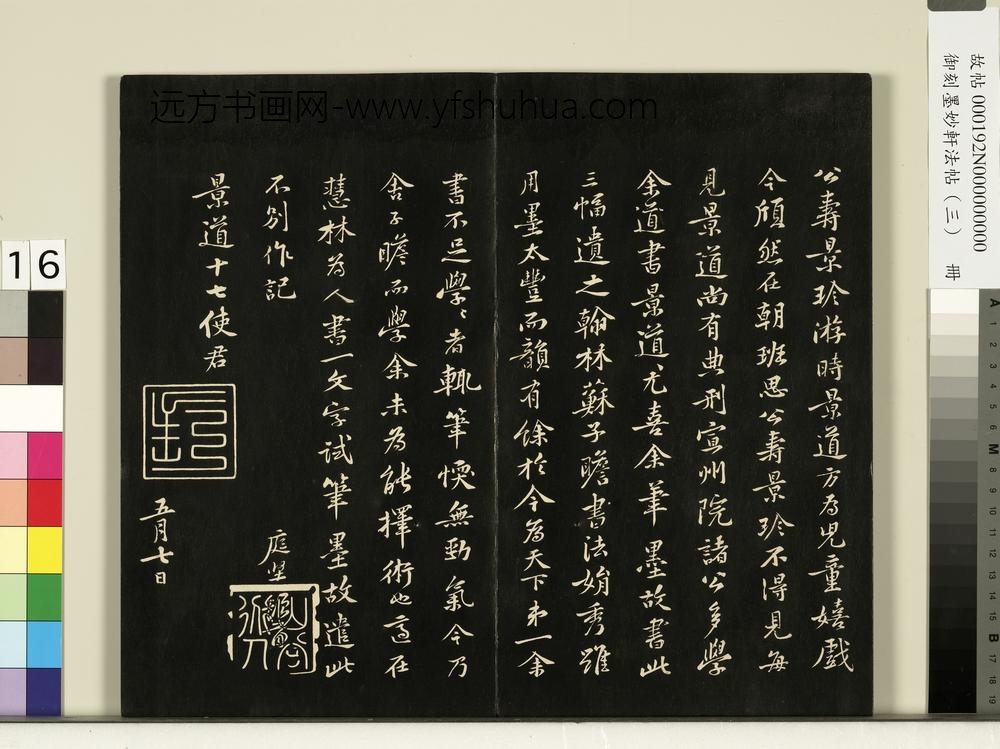 远方书画网-www.yfshuhua.com
公壽景珍游時景道方為兒童嬉戲
今頎然在朝班思公壽景珍不得見每
見景道尚有典刑宣州院諸公多學
余道書景道尤喜余筆墨故書此
三幅遺之翰林蘇子瞻書法娟秀雖
用墨太豐而韻有餘於今為天下第一余
書不足學學者輒筆愞無勁氣今乃
舍子瞻而學余未為能擇術也適在
慧林為人書一文字試筆墨故遣此
不別作記
庭堅
景道十七使君
五月七日
故帖000192N000000000
御刻墨妙軒法帖(三) 冊
16
A 1 2 3 4 5 6 M 8 9 10 11 12 13 14 15 B 17 18 19